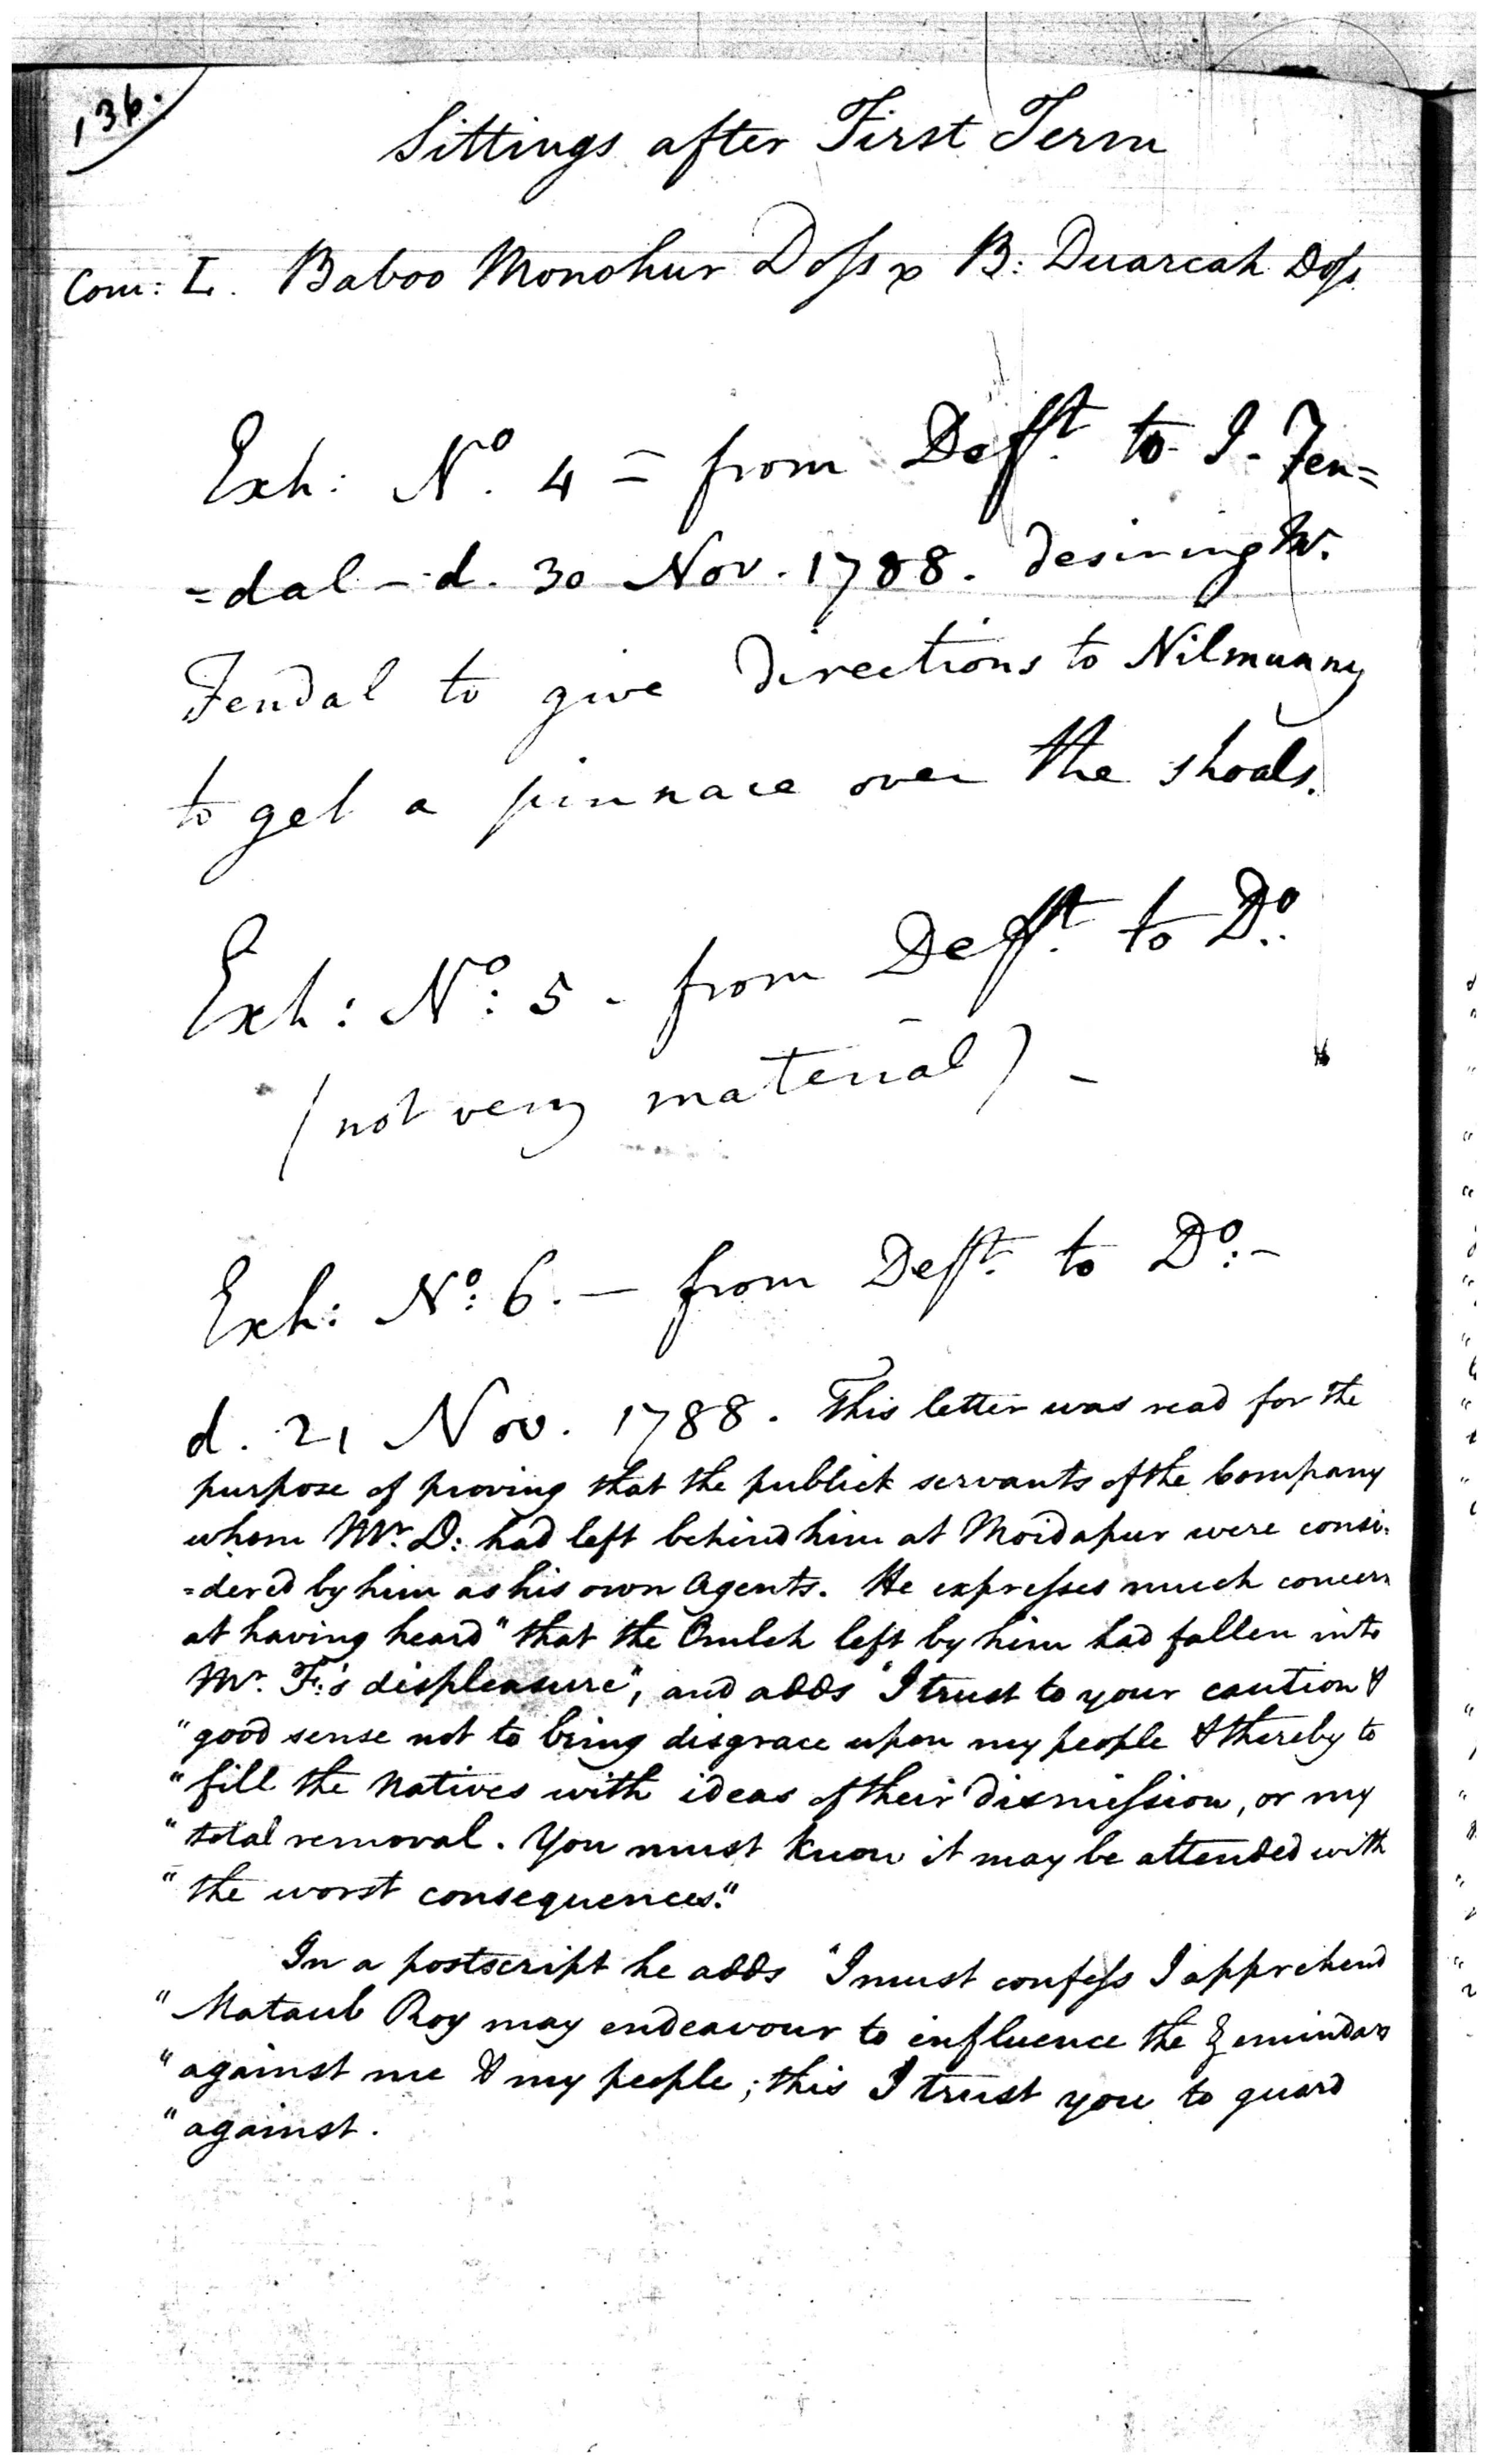 136.
Sittings after First Term
Com: L. Baboo Monohur Doſs v B: Duarcah Doſs
Exh: Nº. 4 = from Defft. to I. Fen=
=dal - d. 30 Nov. 1788. desiring Mr.
Fendal to give directions to Nilmunny
to get a pinnace over the shoals.
Exh: Nº: 5 - from Defft. to Dº.
(not very material) -
Exh: Nº: 6. - from Defft. to Dº: -
d. 21 Nov. 1788. This letter was read for the
purpose of proving that the publick servants of the Company
whom Mr. D: had left behind him at Moidapur were consi=
=dered by him as his own Agents. He expreſses much concern
at having heard "that the Omlah left by him had fallen into
Mr. F:'s displeasure", and adds "I trust to your caution &
"good sense not to bring disgrace upon my people & thereby to
"fill the Natives with ideas of their dismiſsion, or my
"total removal. You must know it may be attended with
"the worst consequences."
In a postscript he adds "I must confeſs I apprehend
"Mataub Roy may endeavour to influence the Zemindars
"against me & my people; this I trust you to guard
"against.